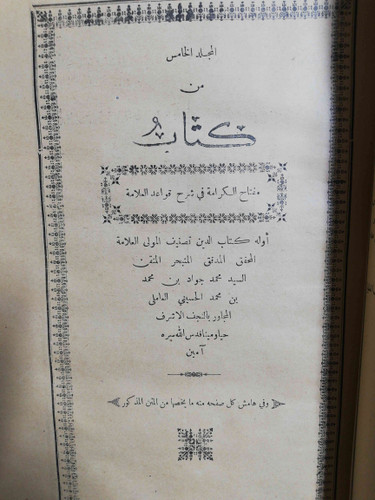 المجلد الخامس
من
كتاب
مفتاح الكرامة في شرح قواعد العلامة
أوله كتاب الدين تصنيف المولى العلامة
المحقق المدقق المتبحر المتقن
السيد محمد جواد بن محمد
بن محمد الحسيني العاملي
المجاور بالنجف الاشرف
حيا وميتا قدس الله سره
آمين
وفي هامش كل صفحه منه ما يخصها من المتن المذكور